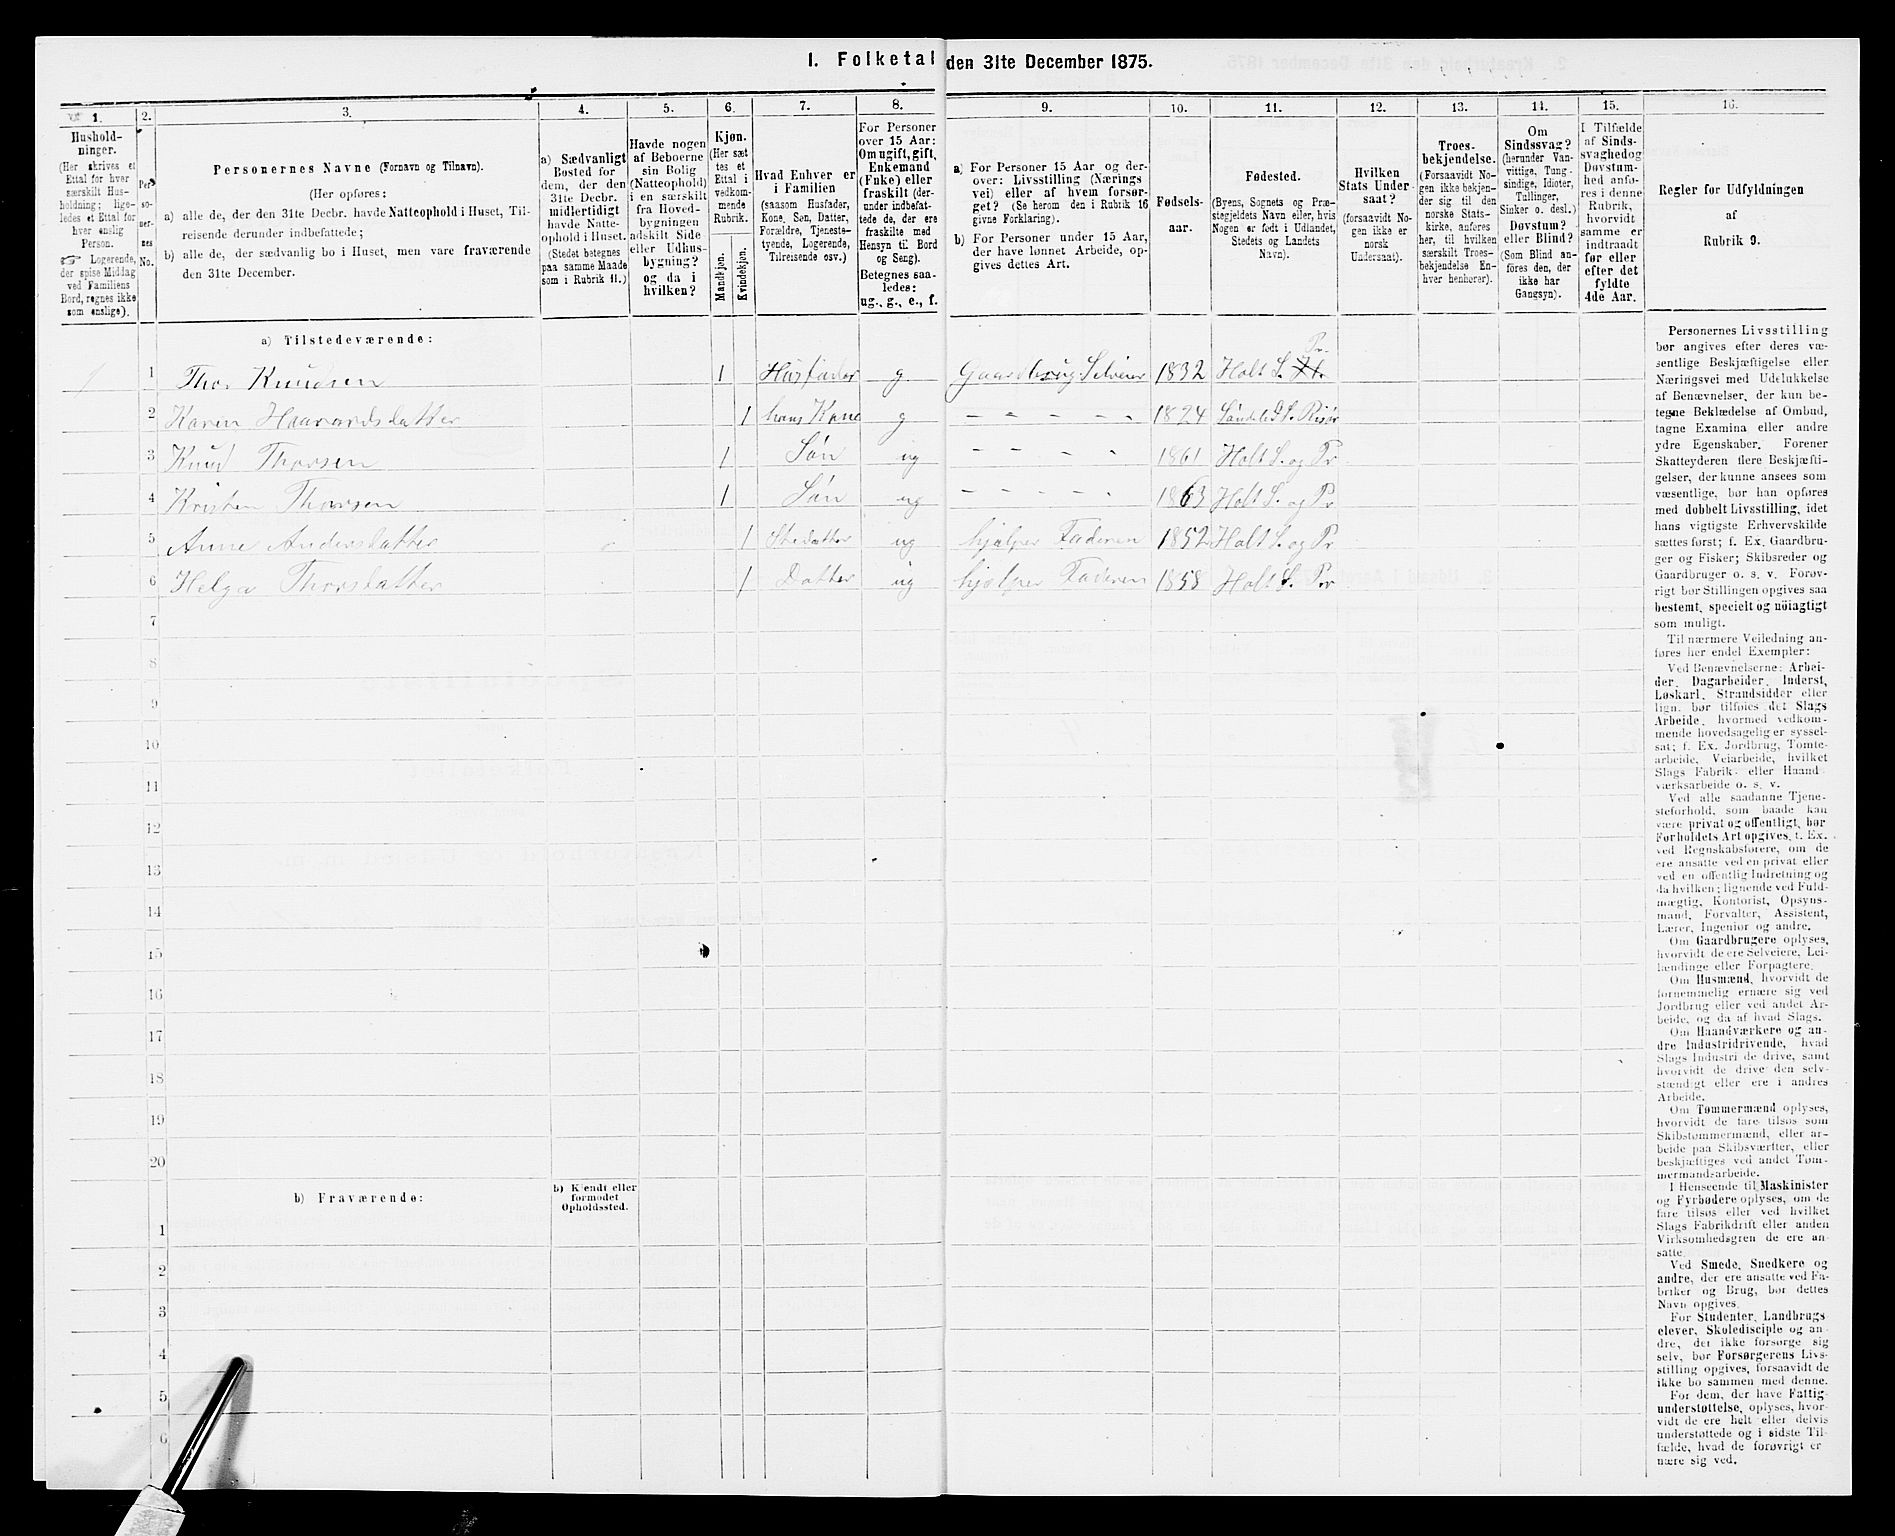 1. Folketal den 31te December 1875.
1. 2. 3. 4. 5. 6. 7. 8. 9. 10. 11. 12. 13. 14. 15. 16.
Hushold-
ninger.
(Her skrives et
Ettal for hver
særskilt Hus-
holdning; lige-
ledes et Ettal for
hver enslig
Person.
Logerende,
der spise Middag
ved Familiens
Bord, regnes ikke
som enslige).
Per-
so-
ner-
nes
No.
Personernes Navne (Fornavn og Tilnavn).
(Her opføres:
a) alle de, der den 31te Decbr. havde Natteophold i Huset, Til-
reisende derunder indbefattede;
b) alle de, der sædvanlig bo i Huset, men vare fraværende
den 31te December.
a) Sædvanligt
Bosted for
dem, der den
31te Decbr.
midlertidigt
havde Natte-
ophold i Huset.
(Stedet betegnes
paa samme Maade
som i Rubrik 11.)
Havde nogen
af Beboerne
sin Bolig
(Natteophold)
i en særskilt
fra Hoved-
bygningen
adskilt Side
eller Udhus-
bygning?
og da i
hvilken?
Kjøn.
(Her sæt
tes et
Ettal i
vedkom-
mende
Rubrik.
Mandkjøn.
Kvindekjøn.
Hvad Enhver er
i Familien
(saasom Husfader,
Kone, Søn, Datter,
Forældre, Tjeneste-
tyende, Logerende,
Tilreisende osv.)
For Personer
over 15 Aar:
Om ugift, gift,
Enkemand
(Enke) eller
fraskilt (der-
under indbefat-
tede de, der ere
fraskilte med
Hensyn til Bord
og Seng).
Betegnes saa-
ledes:
ug., g., e., f.
a) For Personer 15 Aar og der-
over: Livsstilling (Nærings
vei) eller af hvem forsør-
get? (Se herom den i Rubrik 16
givne Forklaring).
b) For Personer under 15 Aar,
der have lønnet Arbeide, op-
gives dettes Art.
Fødsels-
aar.
Fødested.
(Byens, Sognets og Præ-
stegjeldets Navn eller, hvis
Nogen er født i Udlandet,
Stedets og Landets
Navn).
Hvilken
Stats Under-
saat?
(forsaavidt No-
gen ikke er
norsk
Undersaat).
Troes-
bekjendelse.
(Forsaavidt No-
gen ikke bekjen-
der sig til den
norske Stats-
kirke, anføres
her, til hvilken
særskilt Troes-
bekjendelse En-
hver henhører).
Om
Sindssvag?
(herunder Van-
vittige, Tung-
sindige, Idioter,
Tullinger,
Sinker o. desl.)
Døvstum?
eller Blind?
(Som Blind an-
føres den, der
ikke har
Gangsyn).
I Tilfælde
af Sinds-
svaghed og
Døvstum-
hed anfø-
res i denne
Rubrik,
hvorvidt
samme er
indtraadt
før eller
efter det
fyldte
4de Aar.
Regler for Udfyldningen
af
Rubrik 9.
a) Tilstedeværende:
1 1 Thor Knudsen 1 Husfader g Gaardbrug. Selveier 1832 Holt S. Pr.
2 Karen Haavardsdatter 1 hans Kone g - - - - 1824 Søndeled S. Risør
3 Knud Thorsen 1 Søn ug - - - - 1861 Holt S. og Pr
4 Kristen Thorsen 1 Søn ug - - - - 1863 Holt S. og Pr
5 Anne Andersdatter 1 Stedatter ug hjælper Faderen 1852 Holt S. og Pr
6 Helga Thorsdatter 1 Datter ug hjælper Faderen 1858 Holt S. Pr
7
8
9
10
11
12
13
14
15
16
17
18
19
20
b) Fraværende:
b) Kjendt eller
formodet
Opholdssted.
1
2
3
4
5
6
Personernes Livsstilling
bør angives efter deres væ-
sentlige Beskjæftigelse eller
Næringsvei med Udelukkelse
af Benævnelser, der kun be-
tegne Beklædelse af Ombud,
tagne Examina eller andre
ydre Egenskaber. Forener
Skatteyderen flere Beskjæfti-
gelser, der kunne ansees som
væsentlige, bør han opføres
med dobbelt Livsstilling, idet
hans vigtigste Erhvervskilde
sættes først; f. Ex. Gaardbru-
ger og Fisker; Skibsreder og
Gaardbruger o. s. v. Forøv-
rigt bør Stillingen opgives saa
bestemt, specielt og nöiagtigt
som muligt.
Til nærmere Veiledning an-
føres her endel Exempler:
Ved Benævnelserne: Arbei-
der, Dagarbeider, Inderst,
Løskarl, Strandsidder eller
lign. bør tilføies det Slags
Arbeide, hvormed vedkom-
mende hovedsagelig er syssel-
sat; f. Ex. Jordbrug, Tomte-
arbeide, Veiarbeide, hvilket
Slags Fabrik- eller Haand-
værksarbeide o. s. v.
Ved alle saadanne Tjene-
steforhold, som baade kan
være privat og offentligt, bør
Forholdets Art opgives, t. Ex.
ved Regnskabsførere, om de
ere ansatte ved en privat eller
ved en offentlig Indretning og
da hvilken; lignende ved Fuld-
mægtig, Kontorist, Opsyns-
mand, Forvalter, Assistent,
Lærer, Ingeniør og andre.
Om Gaardbrugere oplyses,
hvorvidt de ere Selveiere, Lei-
lændinge eller Forpagtere.
Om Husmænd, hvorvidt de
fornemmelig ernære sig ved
Jordbrug eller ved andet Ar-
beide, og da af hvad Slags.
Om Haandværkere og an-
dre Industridrivende, hvad
Slags Industri de drive, samt
hvorvidt de drive den selv-
stændigt eller ere i andres
Arbeide.
Om Tømmermænd oplyses,
hvorvidt de fare tilsøs som
Skibstømmermænd, eller ar-
beide paa Skibsværfter, eller
beskjæftiges ved andet Tøm-
mermandsarbeide.
I Henseende til Maskinister
og Fyrbødere oplyses, om de
fare tilsøs eller ved hvilket
Slags Fabrikdrift eller anden
Virksomhedsgren de ere an-
satte.
Ved Smede, Snedkere og
andre, der ere ansatte ved Fa-
briker og Brug, bør dettes
Navn opgives.
For Studenter, Landbrugs
elever, Skoledisciple og an-
dre, der ikke forsørge sig
selv, bør Forsørgerens Livs-
stilling opgives, forsaavidt de
ikke bo sammen med denne.
For dem, der have Fattig-
understøttelse, oplyses, hvor-
vidt de ere helt eller delvis
understøttede og i sidste Til-
fælde, hvad de forøvrigt er
nære sig ved.